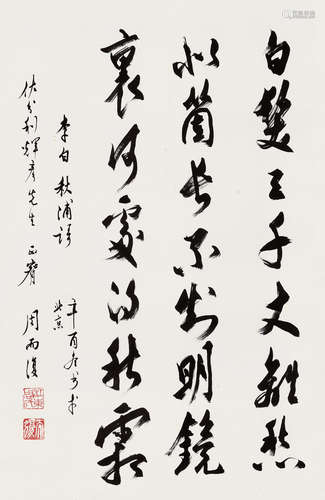 白髮三千丈離愁
似箇長不知明鏡
裏何處得秋霜
李白 秋浦詩
辛酉冬書於
北京
佐分利輝彥先生 正
周而復